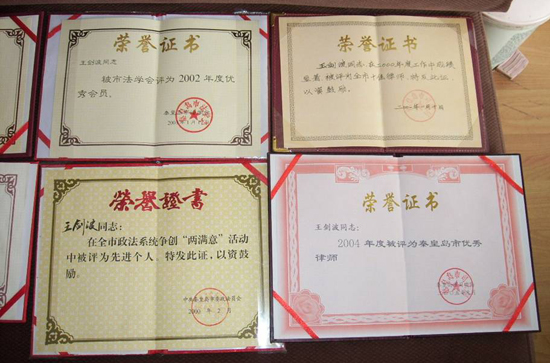 荣誉证书
王剑波同志
被市法学会评为2002年度优
秀会员。
荣誉证书
王剑波同志:在2000年度工作中成绩
显著被评为全市十佳律师,特发此证
以资鼓励。
榮譽證書
王剑波同志:
在全市政法系统争创“两满意”活动
中被评为先进个人。特发此证,以资鼓
励。
2000年2月
荣誉证书
王剑波同志:
2004年度被评为秦皇岛市优秀
律师